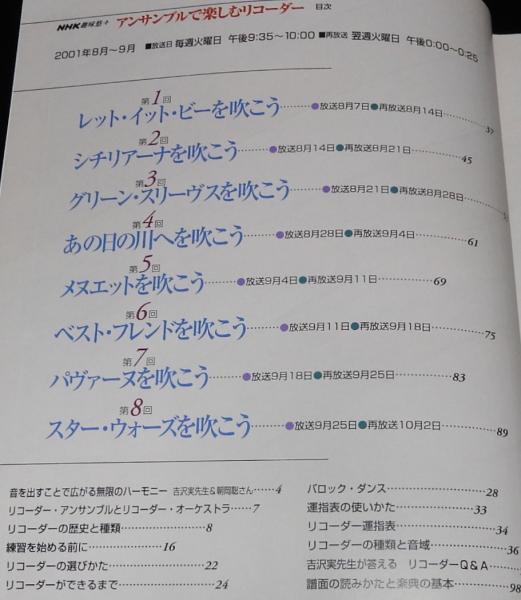 NHK趣味悠々 アンサンブルで楽しむリコーダー 目次
2001年8月～9月 ■放送日 毎週火曜日 午後9:35～10:00 ■再放送 翌週火曜日 午後0:00～0:25
第1回
レット・イット・ビーを吹こう………●放送8月7日●再放送8月14日………37
第2回
シチリアーナを吹こう………●放送8月14日●再放送8月21日………45
第3回
グリーン・スリーヴスを吹こう………●放送8月21日●再放送8月28日………
第4回
あの日の川へを吹こう………●放送8月28日●再放送9月4日………61
第5回
メヌエットを吹こう………●放送9月4日●再放送9月11日………69
第6回
ベスト・フレンドを吹こう………●放送9月11日●再放送9月18日………75
第7回
パヴァーヌを吹こう………●放送9月18日●再放送9月25日………83
第8回
スター・ウォーズを吹こう………●放送9月25日●再放送10月2日………89
音を出すことで広がる無限のハーモニー 吉沢実先生&朝岡聡さん……4
リコーダー・アンサンブルとリコーダー・オーケストラ……7
リコーダーの歴史と種類………8
練習を始める前に………16
リコーダーの選びかた………22
リコーダーができるまで………24
バロック・ダンス………28
運指表の使いかた………33
リコーダー運指表………34
リコーダーの種類と音域………36
吉沢実先生が答える リコーダーQ&A………
譜面の読みかたと楽典の基本………98